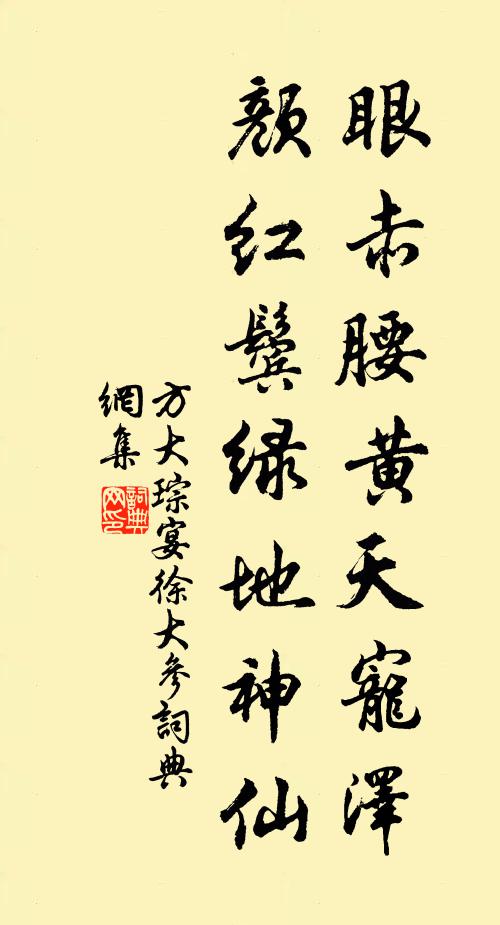 眼赤腰黄天寵澤
颜红鬓绿地神仙
方大琮宴徐大參詞典
網集
詞典
网印